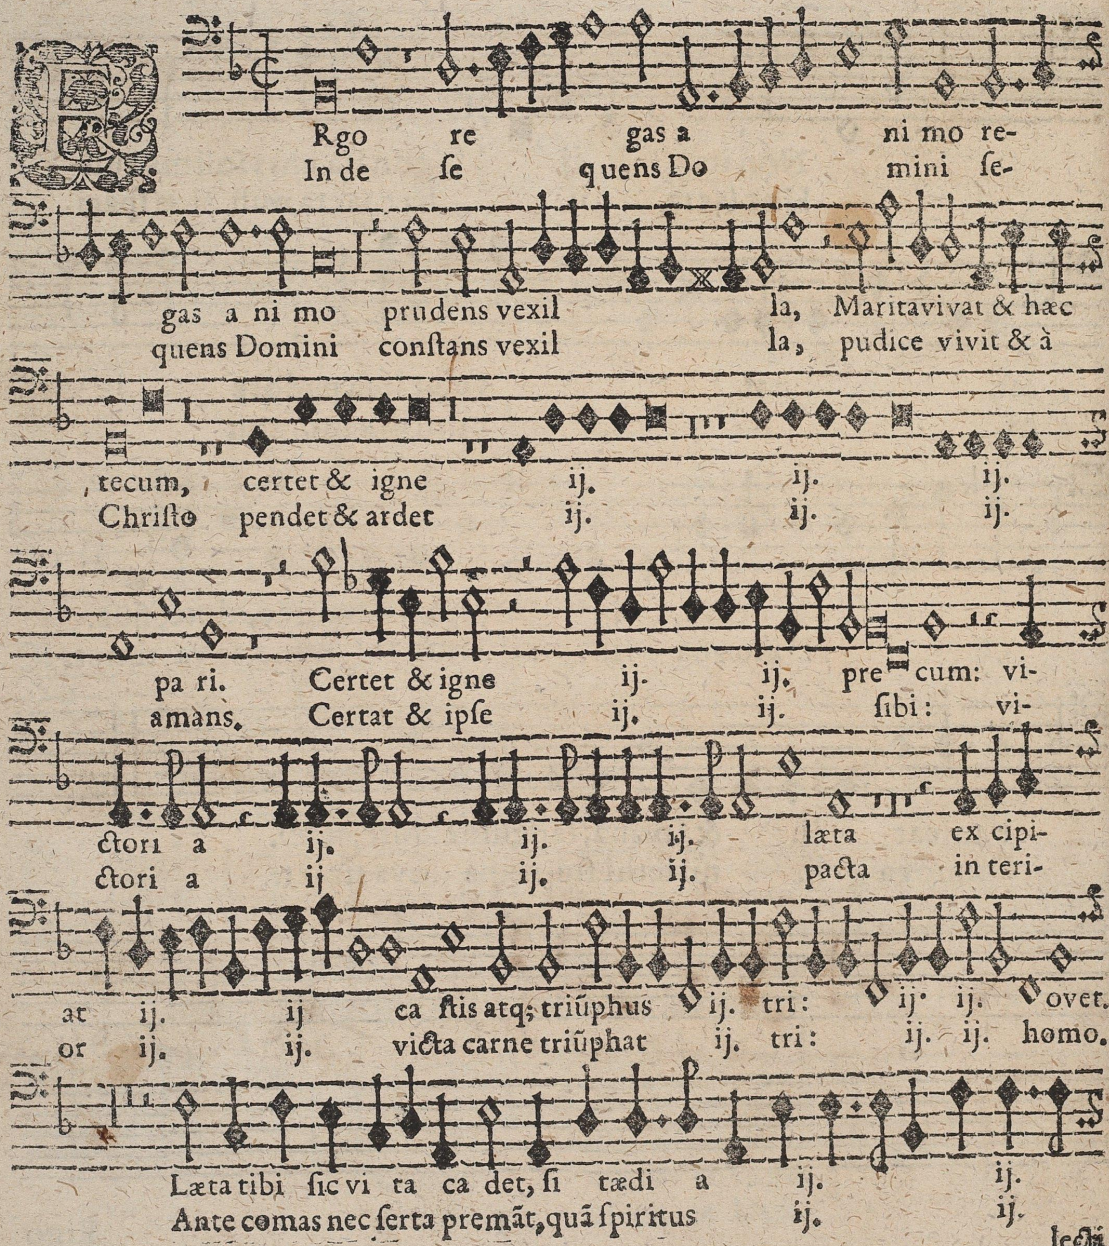 E
Rgo re gas a ni mo re-
In de ſe quens Do mini ſe-
gas a ni mo prudens vexil la, Marita vivat & hæc
quens Domini conſtans vexil la, pudice vivit & à
tecum, certet & igne ij. ij. ij.
Chriſto pendet & ardet ij. ij. ij.
pa ri. Certet & igne ij. ij. pre cum: vi-
amans. Certat & ipſe ij. ij. ſibi: vi-
ctori a ij. ij. ij. læta ex cipi-
ctori a ij ij. ij. pacta in teri-
at ij. ij ca ſtis atq; triũphus ij. tri: ij. ij. ovet.
or ij. ij. victa carne triũphat ij. tri: ij. ij. homo.
Læta tibi ſic vi ta ca det, ſi tædi a ij. ij.
Ante comas nec ſerta premãt, quã ſpiritus ij. ij.